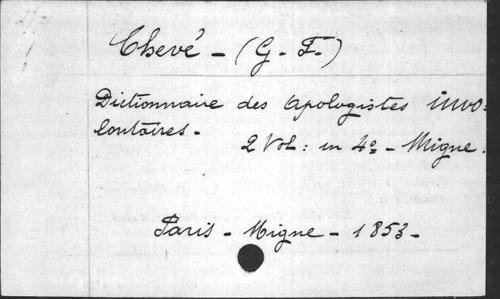 Chevé - (G. F.)
Dictionnaire des Apologistes invo=
lontaires.
2 Vol: in 4º - Migne.
Paris - Migne - 1853 -